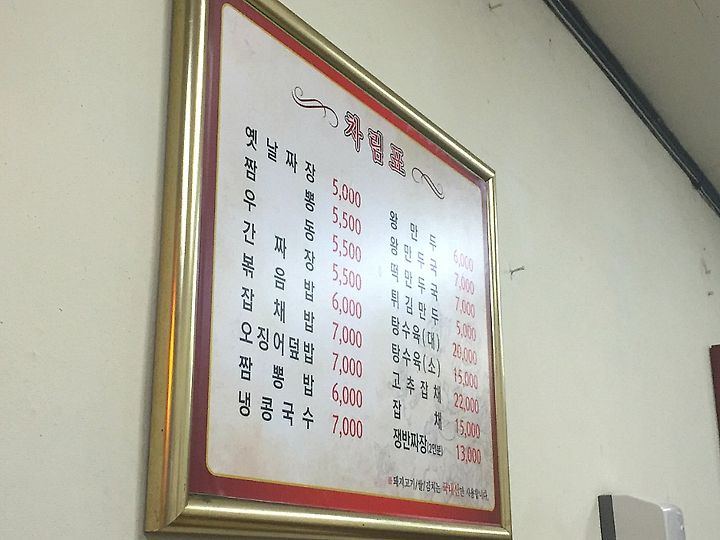 차림표
옛날짜장 5,000
짬뽕 5,500
우동 5,500
간짜장 5,500
볶음밥 6,000
잡채밥 7,000
오징어덮밥 7,000
짬뽕밥 6,000
냉콩국수 7,000
왕만두 6,000
왕만두국 7,000
떡만두국 7,000
튀김만두 5,000
탕수육(대) 20,000
탕수육(소) 15,000
고추잡채 22,000
잡채 15,000
쟁반짜장(2인분) 13,000
※돼지고기/쌀/김치는 국내산만 사용합니다.